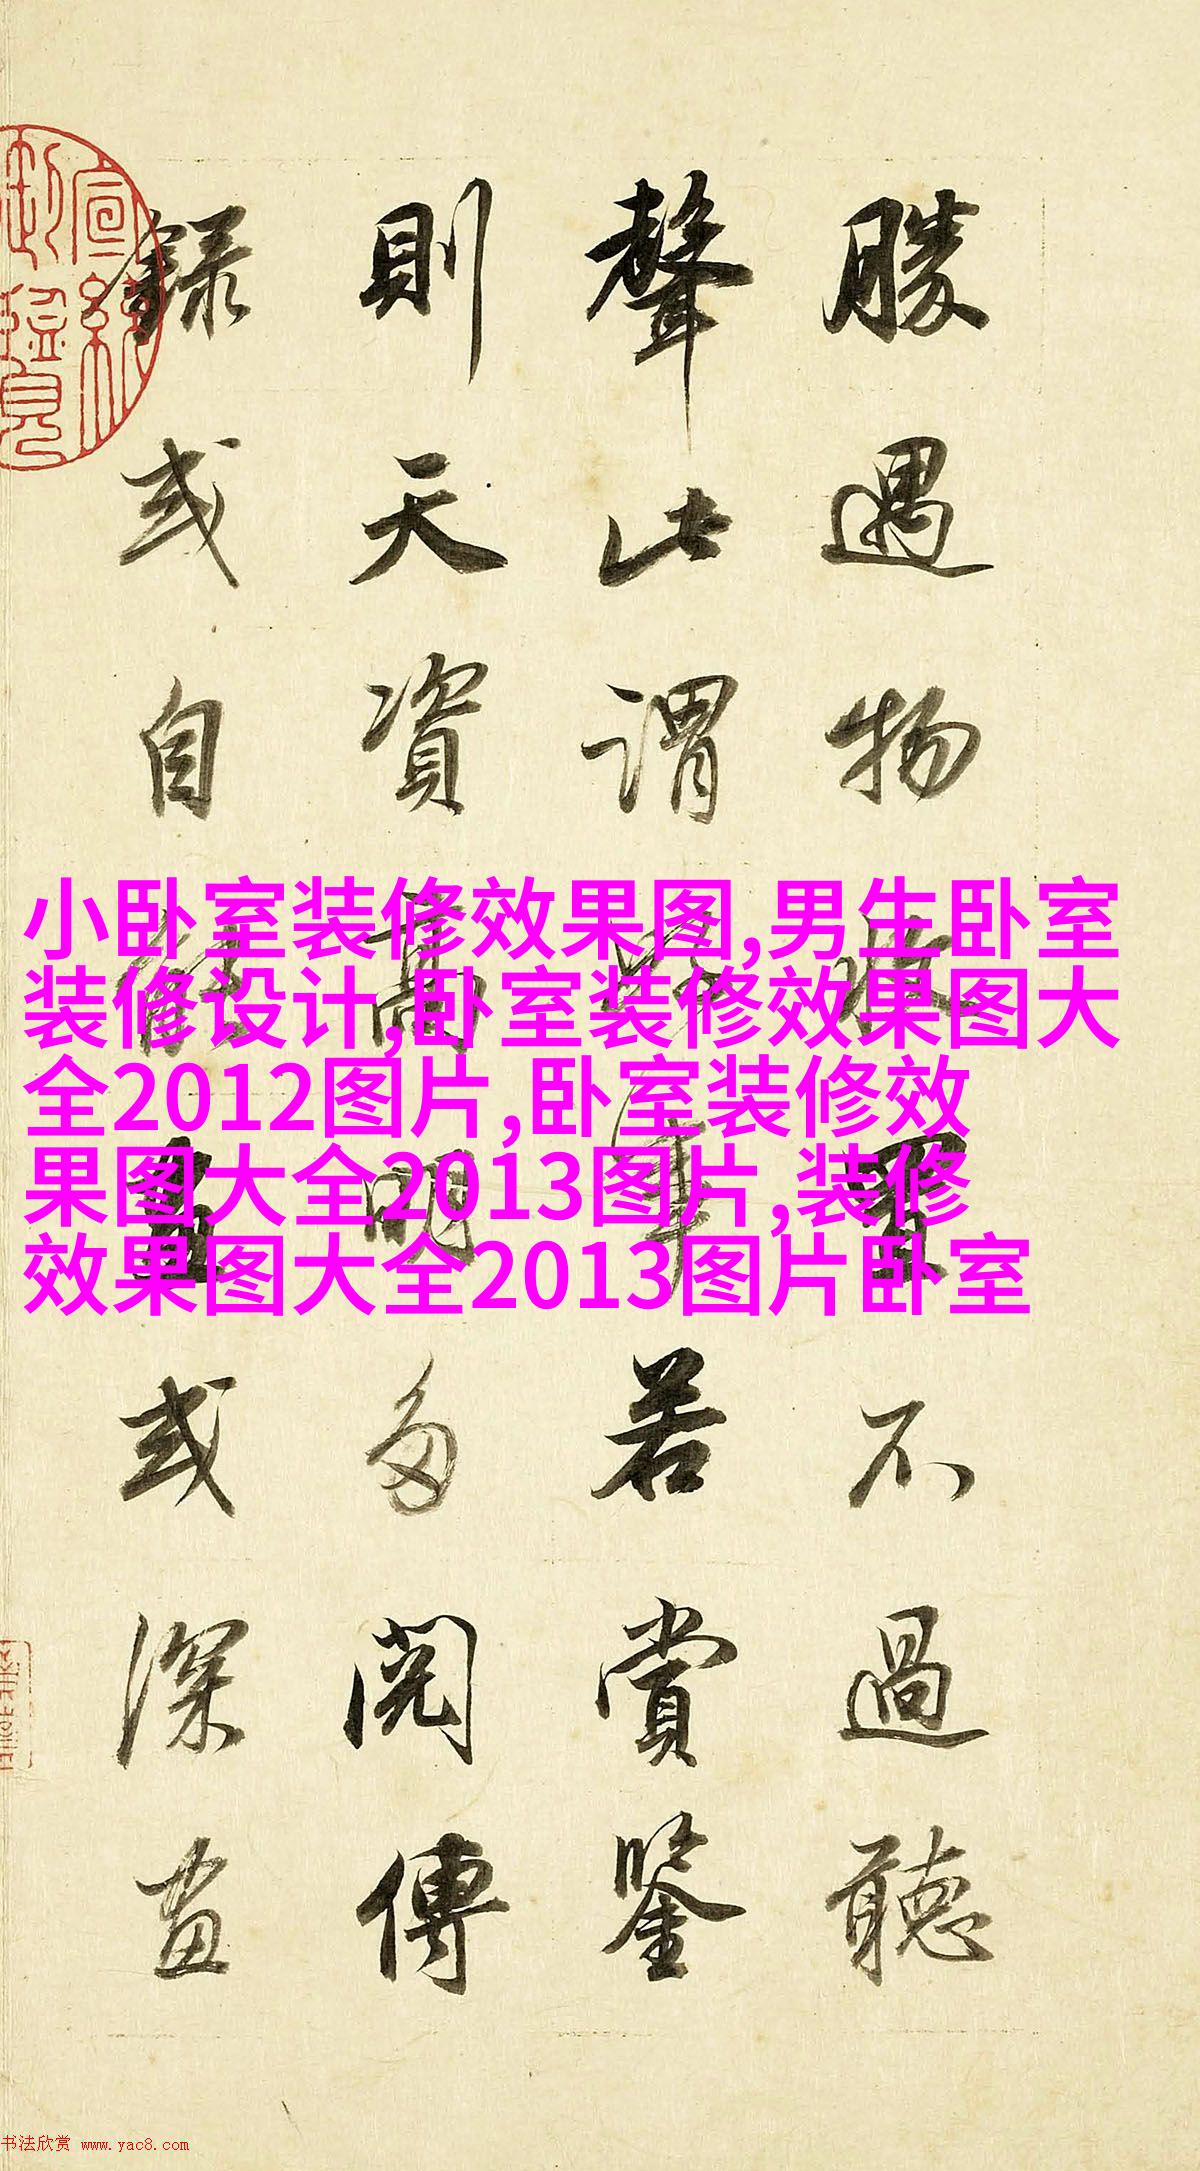 勝遇物收置不過聽
聲此謂好事若賞鑒
則天資高明多閱傳
錄或自能畫或深畫
宣統御覽
小卧室装修效果图,男生卧室
装修设计,卧室装修效果图大
全2012图片,卧室装修效
果图大全2013图片,装修
效果图大全2013图片卧室
书法欣赏 www.yac8.com